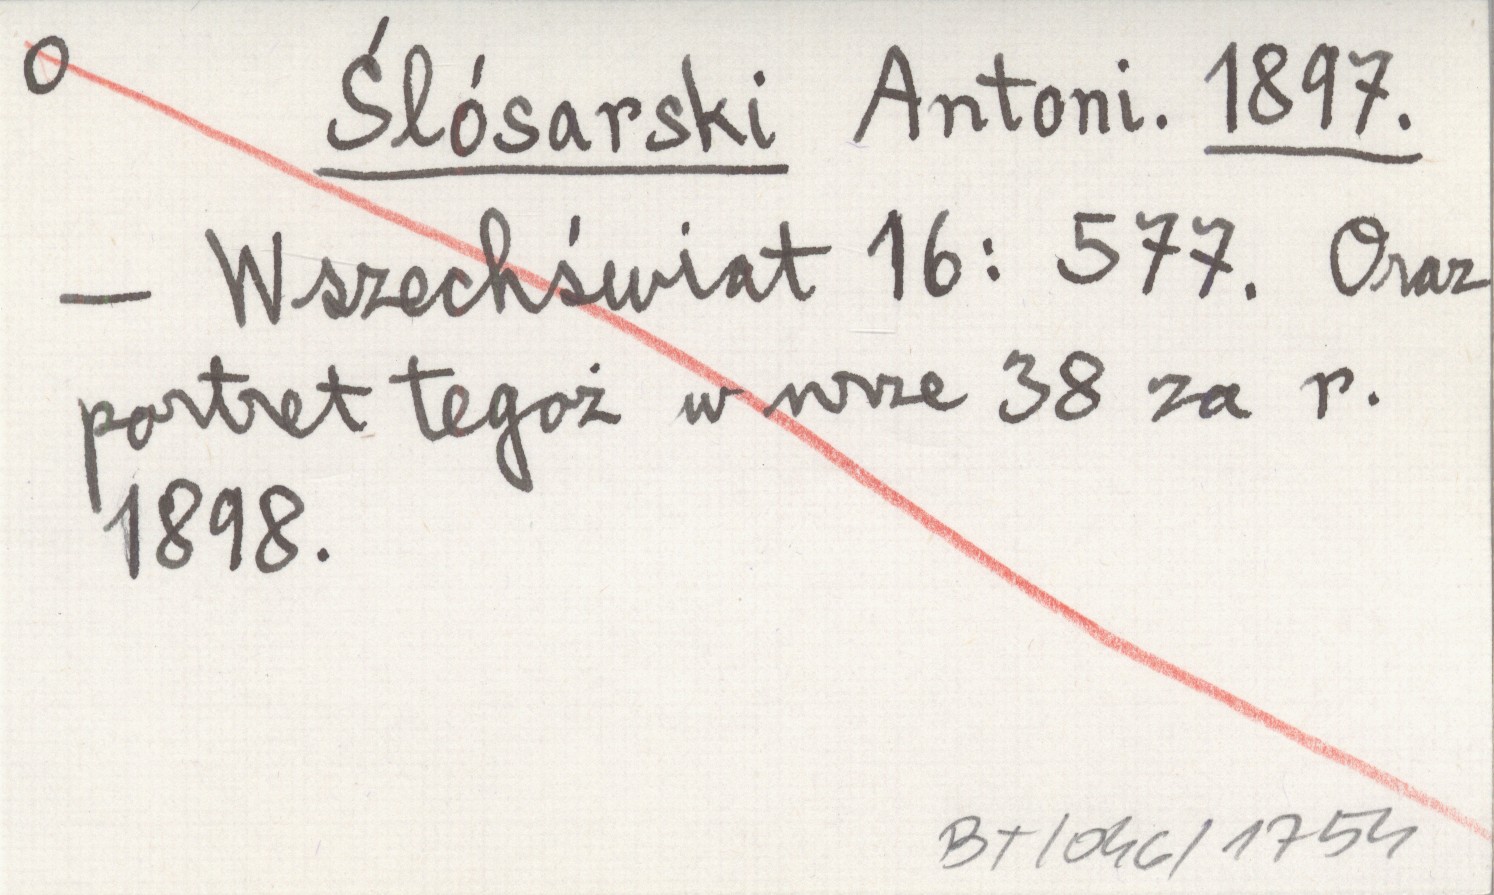 O Ślósarski Antoni. 1897.
— Wszechświat 16: 577. Oraz
portret tegoż w nrze 38 za r.
1898.
BT/046/1754